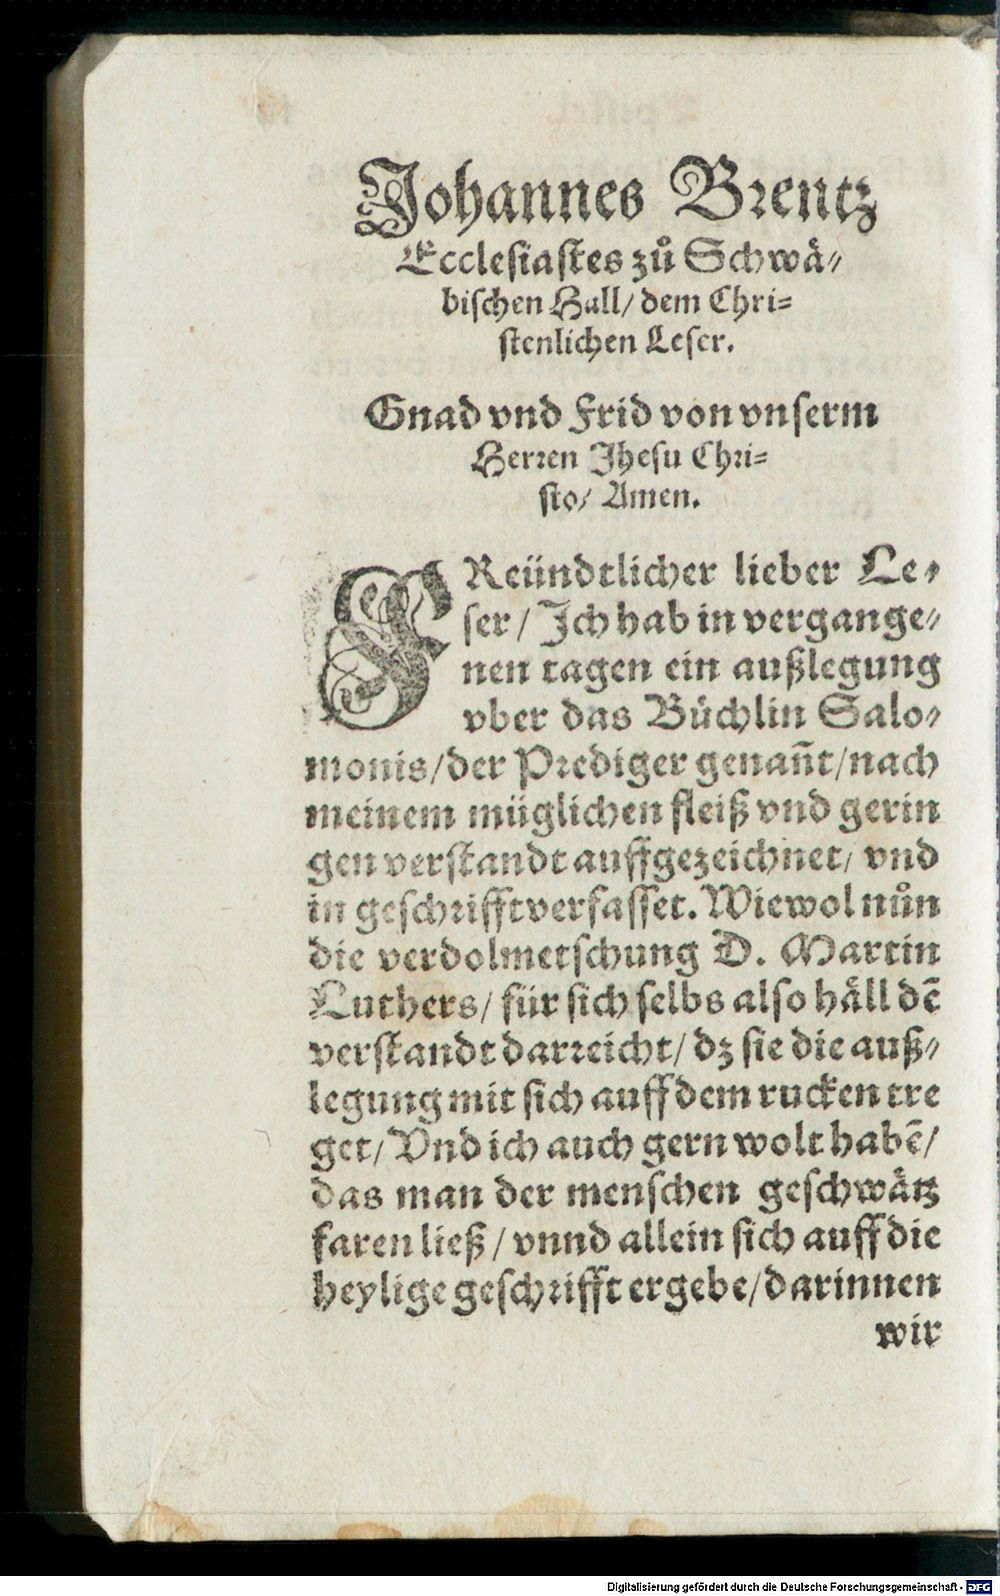 Johannes Brentz
Ecclesiastes zů Schwä⸗
bischen Hall/ dem Chri⸗
stenlichen Leser.
Gnad vnd Frid von vnserm
Herren Jhesu Chri⸗
sto/ Amen.
FReündtlicher lieber Le⸗
ser / Jch hab in vergange⸗
nen tagen ein außlegung
vber das Büchlin Salo⸗
monis/der Prediger genañt/nach
meinem müglichen fleiß vnd gerin
gen verstandt auffgezeichnet/ vnd
in geschrifft verfasset. Wiewol nůn
die verdolmetschung D. Martin
Luthers/ für sich selbs also häll dẽ
verstandt darreicht/ dz sie die auß⸗
legung mit sich auff dem rucken tre
get/ Vnd ich auch gern wolt habẽ/
das man der menschen geschwätz
faren ließ / vnnd allein sich auff die
heylige geschrifft ergebe/darinnen
wir
Digitalisierung gefördert durch die Deutsche Forschungsgemeinschaft - DFG